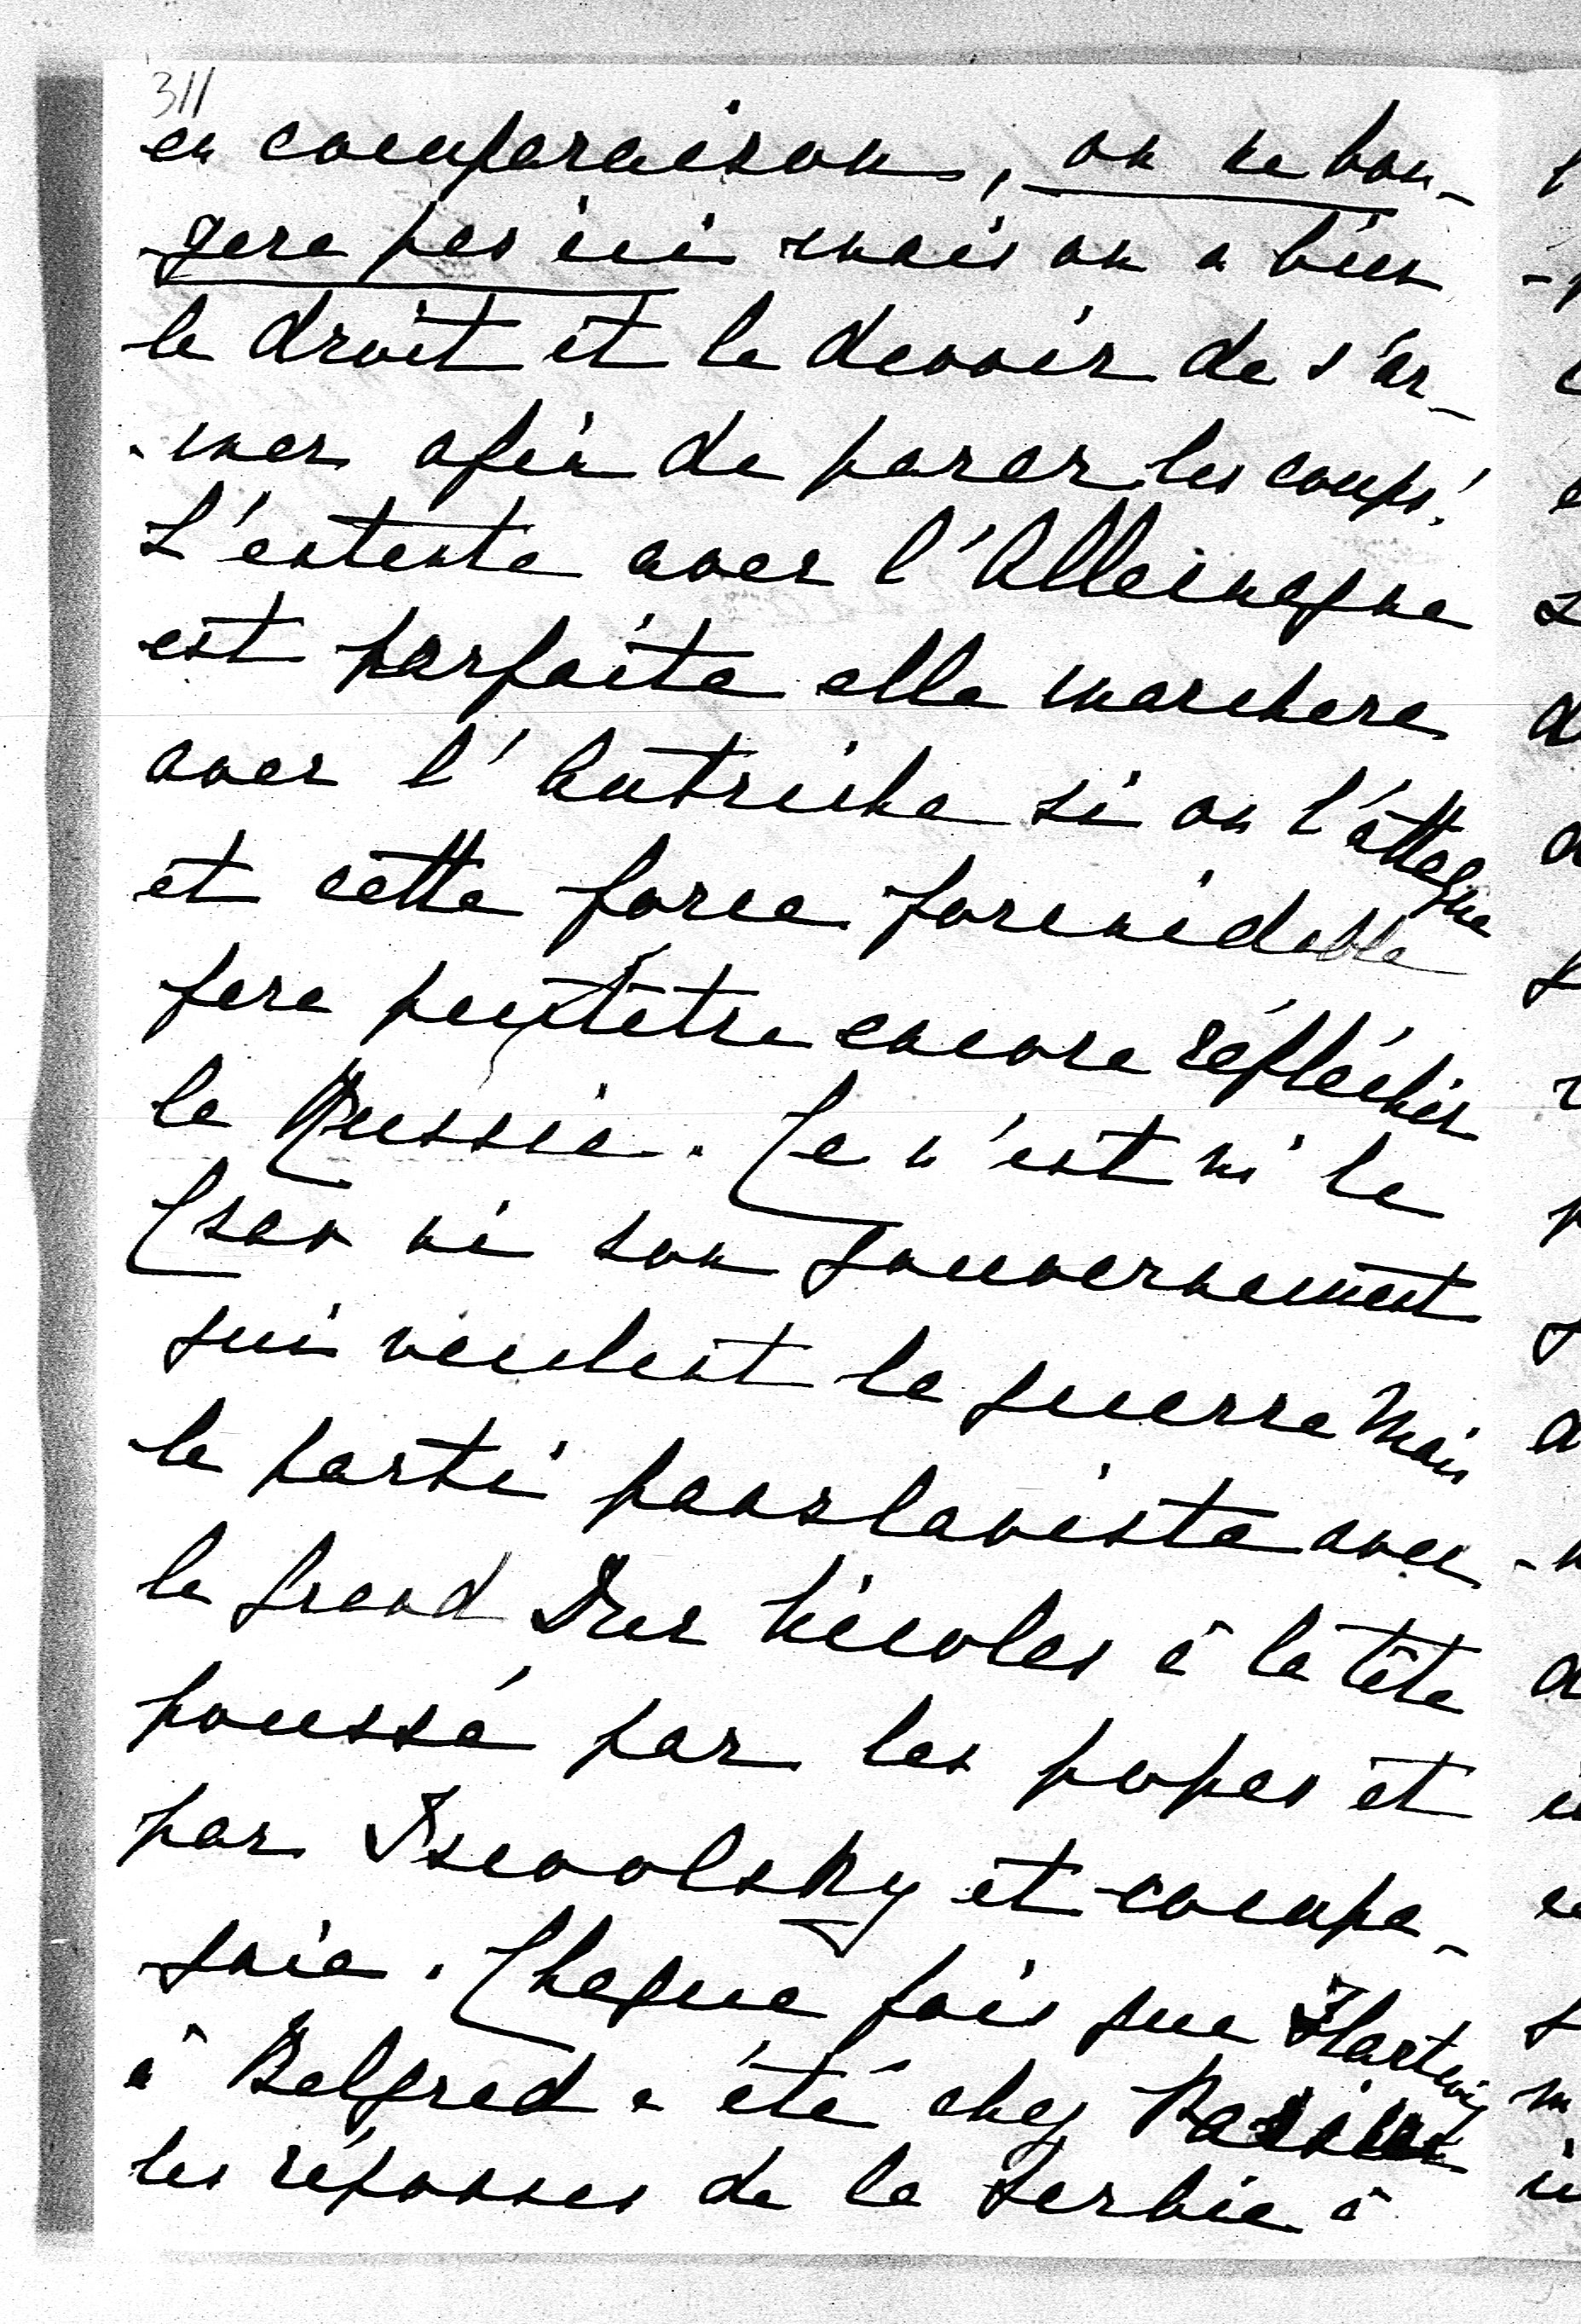 311
en comparaison, on ne bou-
gera pas ici mais on a bien
le droit et le devoir de s'ar-
mer afin de parer les coups!
L'entente avec l'Allemagne
est parfaite elle marchera
avec l'Autriche si on l'attaque
et cette force formidable
fera peutêtre encore réfléchir
la Russie. Ce n'est ni le
Czar ni son gouvernement
qui veulent la guerre mais
le parti panslaviste avec
le grand Duc Nicolas à la tête
poussé par les popes et
par Iswolsky et compa-
gnie. Chaque fois que Hartwig
à Belgrad a été chez
les réponses de la Serbie à